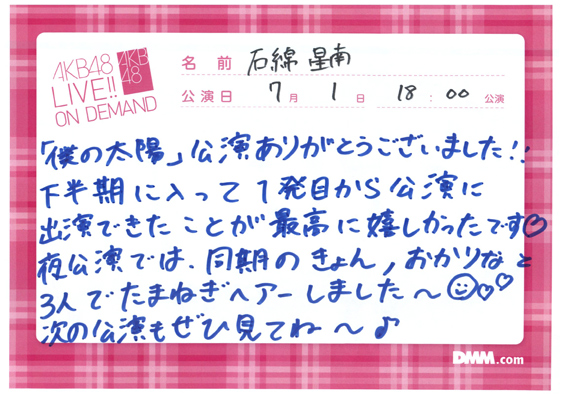 AKB48
LIVE!!
ON DEMAND
AKB
48
名前 石綿 星南
公演日 7月1日 18:00公演
「僕の太陽」公演ありがとうございました!!
下半期に入って1発目から公演に
出演できたことが最高に嬉しかったです♡
夜公演では、同期のきょん,おかりなと
3人でたまねぎヘアーしました〜☺♡♡
次の公演もぜひ見てね〜♪
DMM.com